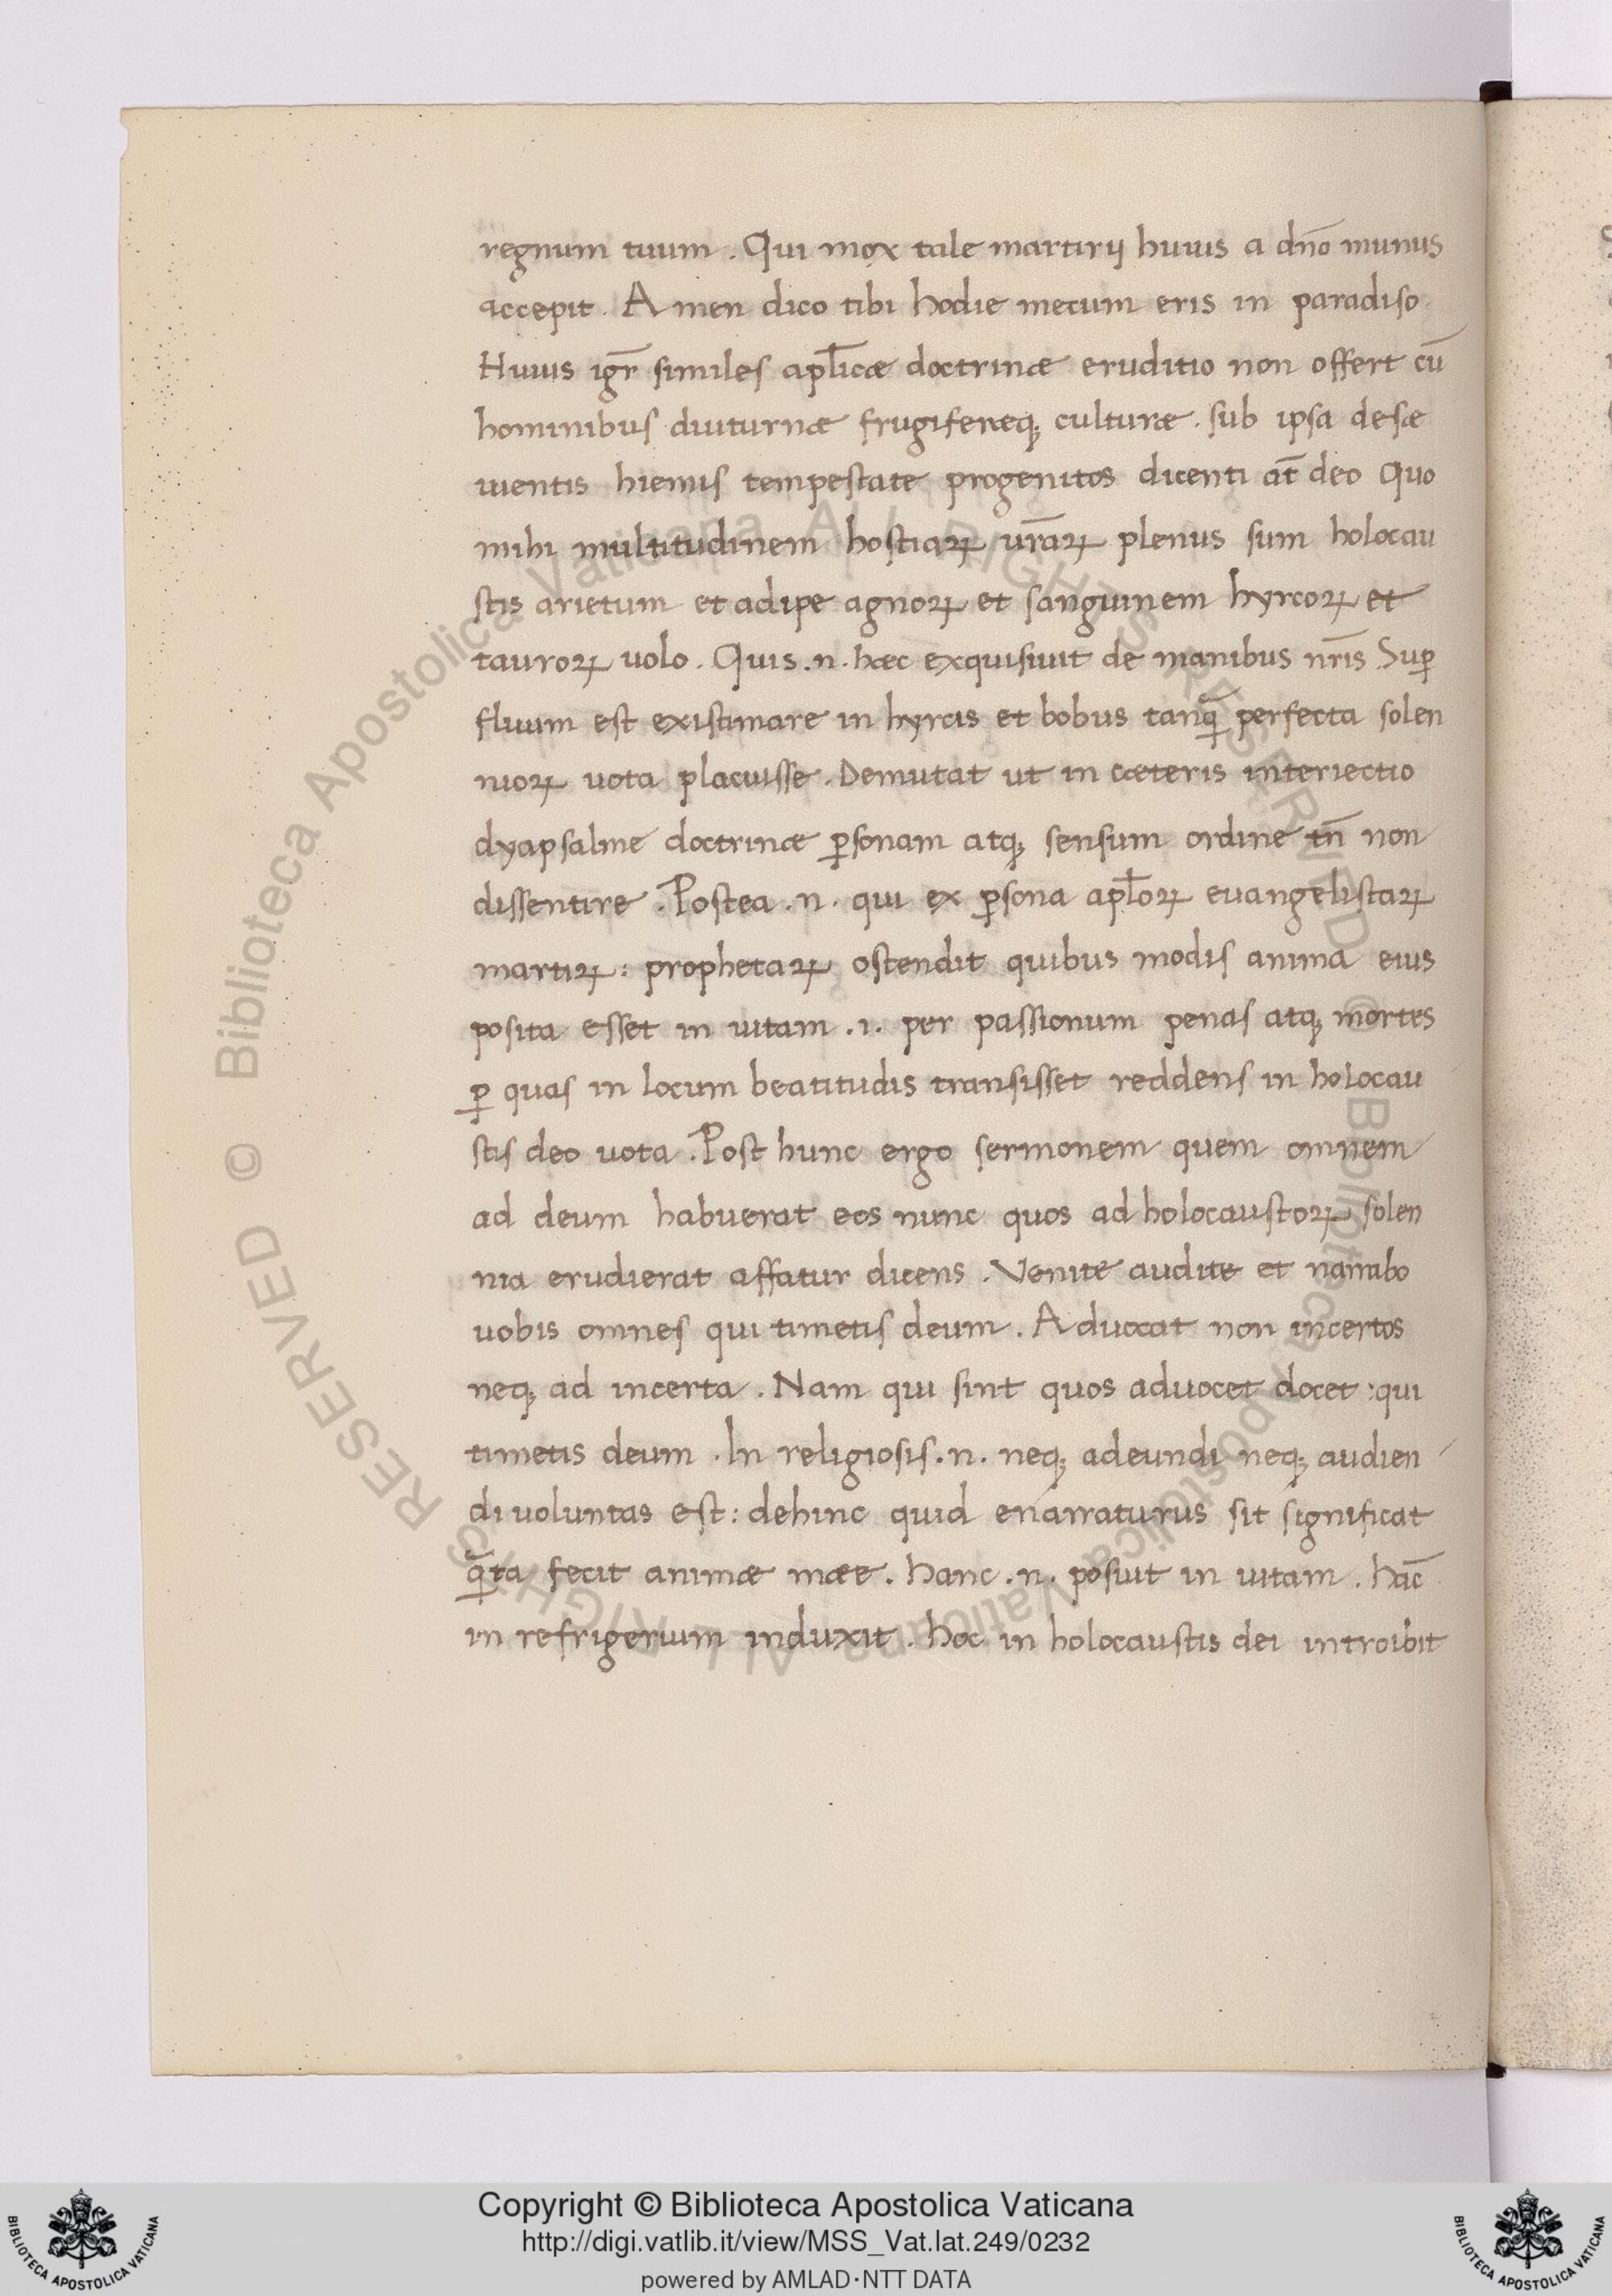 regnum tuum . Qui mox tale martirij huius a dño munus
accepit . Amen dico tibi hodie mecum eris in paradiso
Huius igr̄ similes apl̄icæ doctrinæ eruditio non offert cū
hominibus diuturnæ frugifereq; culturæ . sub ipsa desæ
uientis hiemis tempestate progenitos dicenti at̄ deo Quo
mihi multitudinem hostiaꝝ ur̄aꝝ plenus sum holocau
stis arietum et adipe agnoꝝ et sanguinem hyrcoꝝ et
tauroꝝ uolo . Quis .n. hæc exquisiuit de manibus nr̄is Suꝑ
fluum est existimare in hyrcis et bobus tanꝙ̄ perfecta solen
nioꝝ uota placuisse . Demutat ut in cæteris interiectio
dyapsalme doctrinæ ꝑsonam atq; sensum ordine tn̄ non
dissentire . Postea .n. qui ex ꝑsona apl̄oꝝ euangelistaꝝ
martiꝝ : prophetaꝝ ostendit quibus modis anima eius
posita esset in uitam .i. per passionum penas atq; mortes
ꝑ quas in locum beatitudis transisset reddens in holocau
stis deo uota . Post hunc ergo sermonem quem omnem
ad deum habuerat eos nunc quos ad holocaustoꝝ solen
nia erudierat affatur dicens . Venite audite et narrabo
uobis omnes qui timetis deum . Aduocat non incertos
neq; ad incerta . Nam qui sint quos aduocet docet : qui
timetis deum . In religiosis .n. neq; adeundi neq; audien
di uoluntas est : dehinc quid enarraturus sit significat
ꝙ̄ta fecit animæ mæe . Hanc .n. posuit in uitam . hāc
in refrigerium induxit . hoc in holocaustis dei introibit
Copyright © Biblioteca Apostolica Vaticana
http://digi.vatlib.it/view/MSS_Vat.lat.249/0232
powered by AMLAD·NTT DATA
BIBLIOTECA APOSTOLICA VATICANA
BIBLIOTECA APOSTOLICA VATICANA
© Biblioteca Apostolica Vaticana ALL RIGHTS RESERVED
© Biblioteca Apostolica Vaticana ALL RIGHTS RESERVED